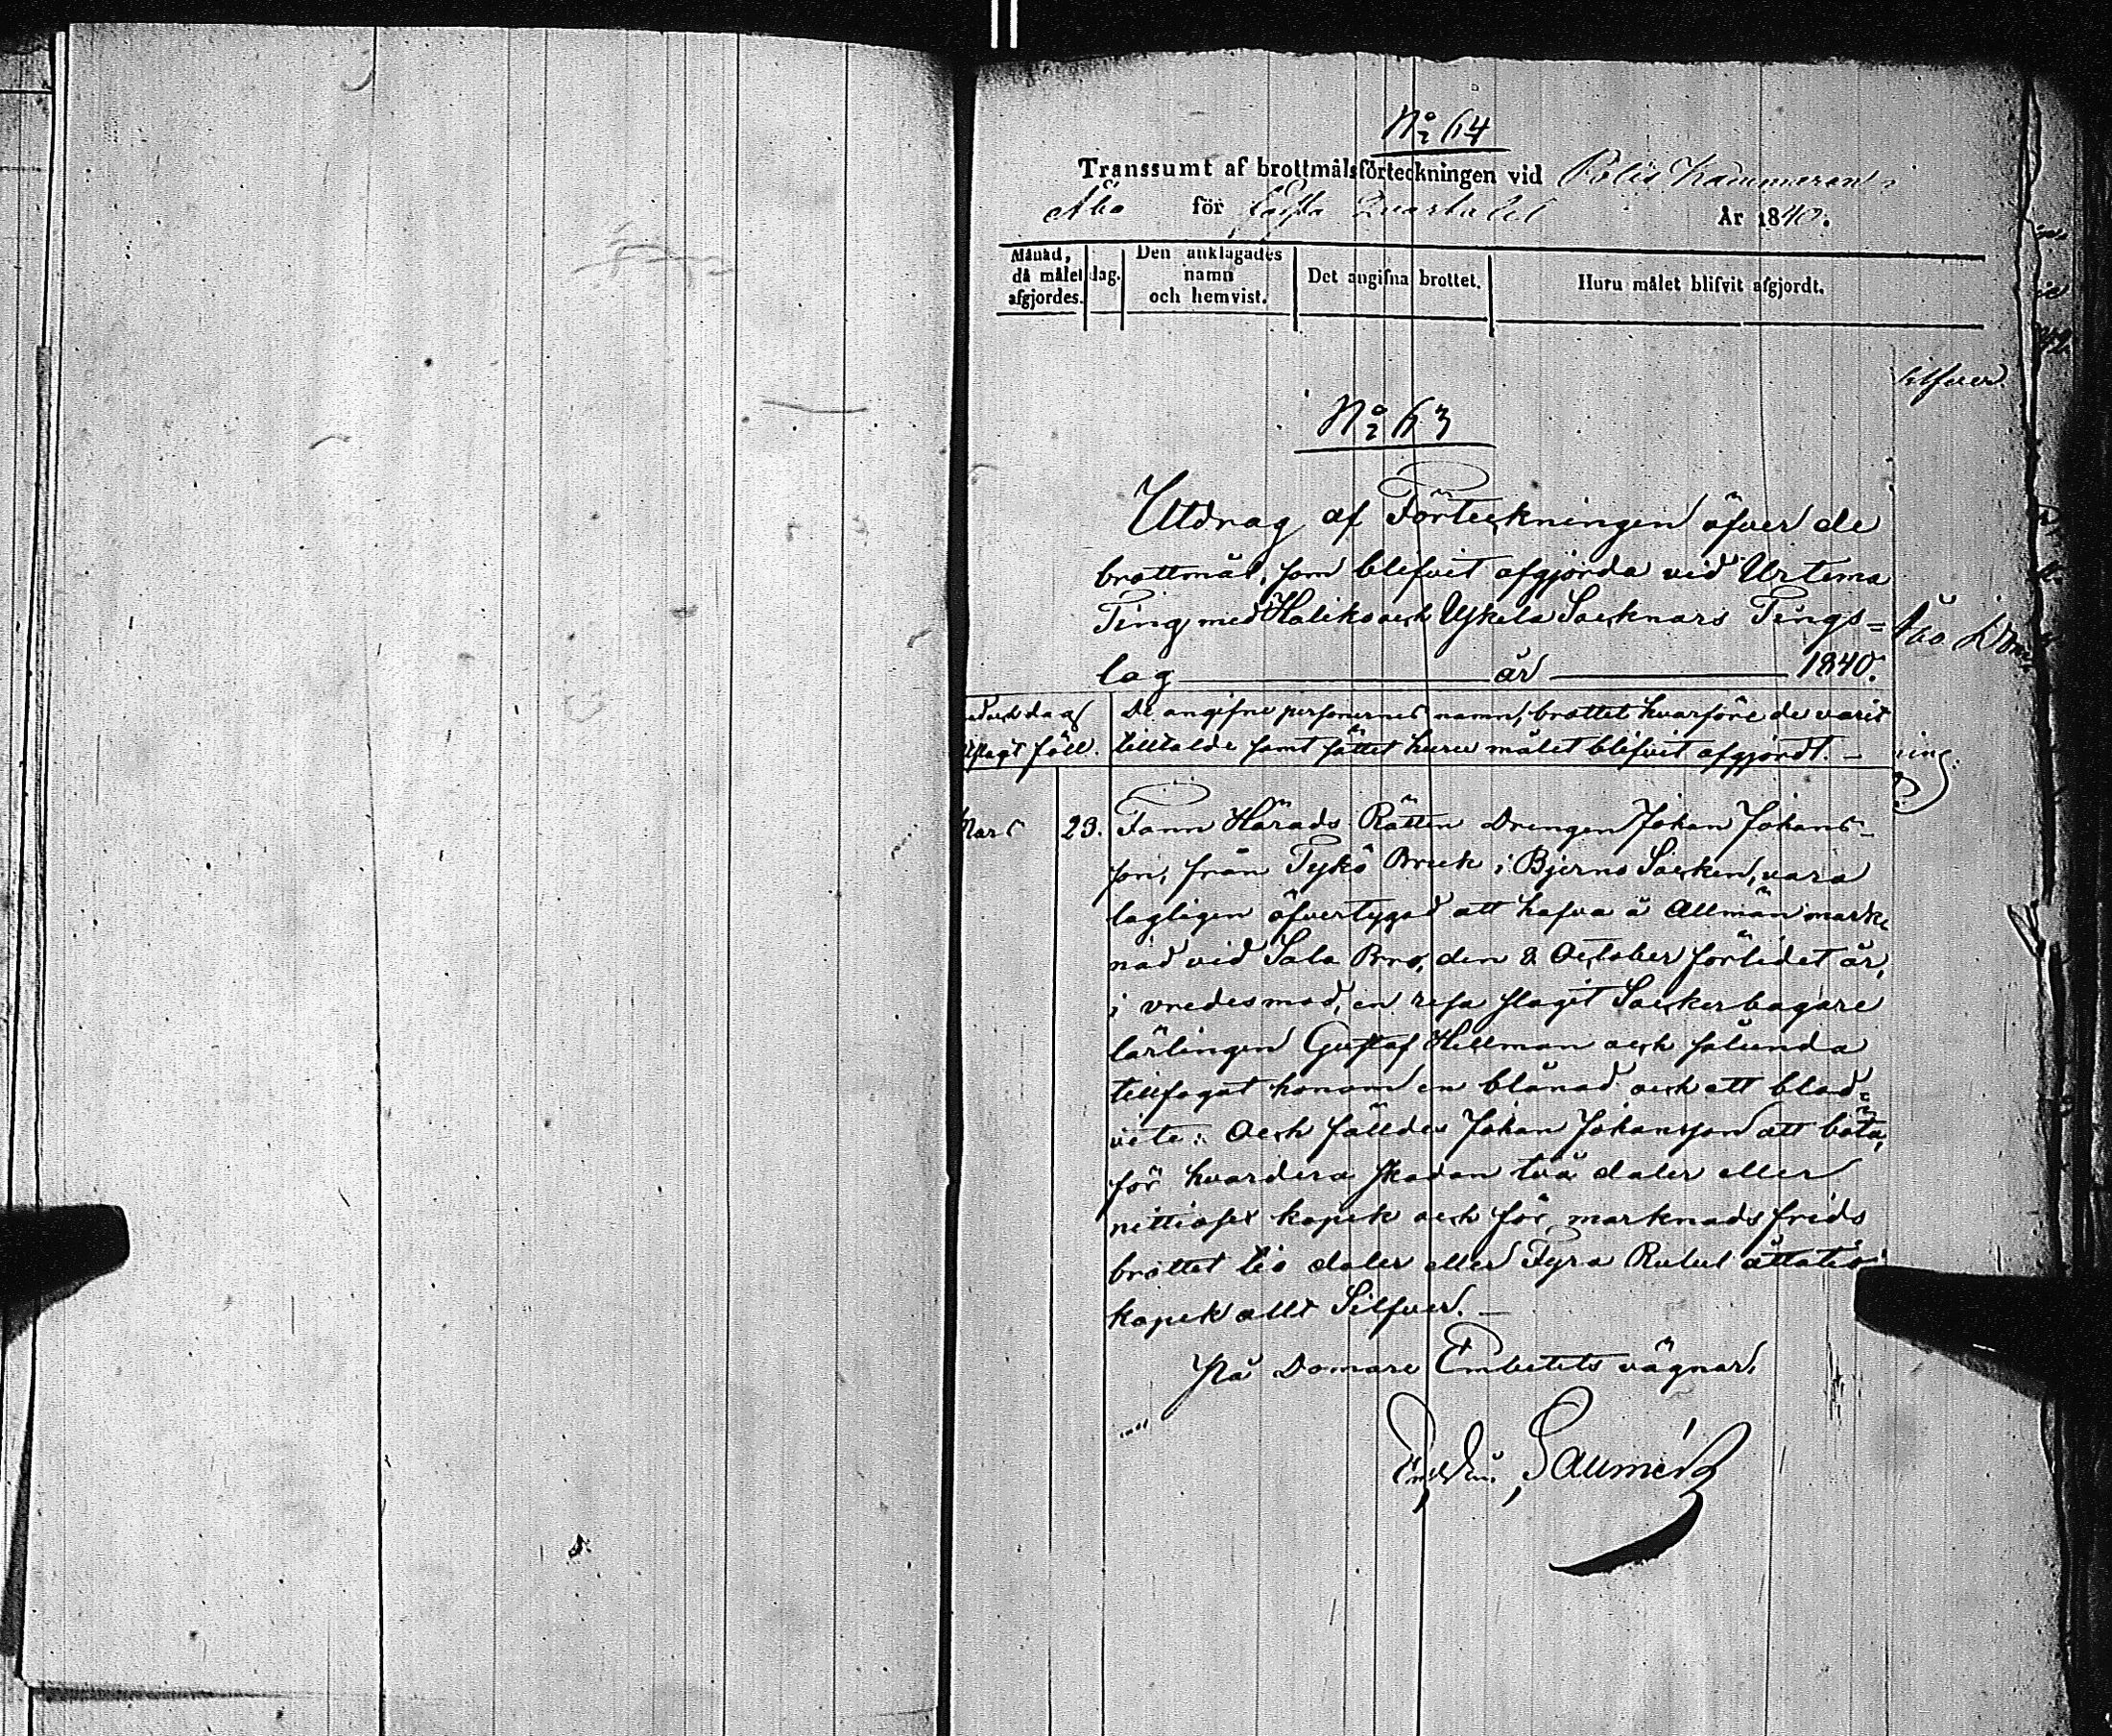 No 64
Transsumt af brottmålsförteckningen vid Polis Kammaren i
Åbo för första Quartalet År 1840.
Månad, då målet afgjordes.
dag.
Den anklagades namn och hemvist.
Det angifna brottet.
Huru målet blifvit afgjordt.
silfver.
No 63
Utdrag af Förteckningen öfver de
brottmål, som blifvit afgjorda vid Urtima
Ting med Haliko och Uskela Socknars Tings=
lag år 1840.
och dag
Utslagit föll.
De angifne personernes namn, brottet hvarföre de varit
tilltalde samt sättet huru målet blifvit afgjordt. —
Mars 23. Fann Härads Rätten Drengen Johan Johans-
son, från Tykö Bruk i Bjerno Socken, vara
lagligen öfvertygad att hafva å Allmän mark-
nad vid Salo Bro, den 2 October förlidet år,
i vredesmod, en resa slagit Sockerbagare
lärlingen Gustaf Hellman och sålunda
tillfogat honom en blånad och ett blod=
vite: Och fälldes Johan Johansson att böta,
för hvardera skadan två daler eller
nittiosex kopek och för marknads frids
brottet tio daler eller Fyra Rubel åttatio
kopek allt Silfver. —
På Domare Embetets vägnar,